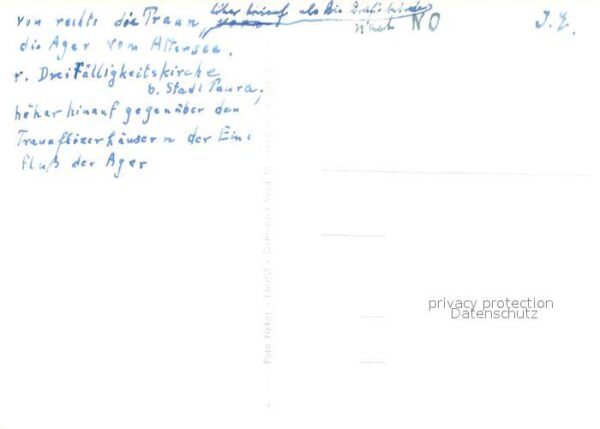 von rechts die Traun, höher hinauf als die
nach NO
J. Z.
die Ager vom Attersee.
r. Dreifälligkeitskirche
b. Stadl Paura,
höher hinauf gegenüber den
Traunflözerhäusern der Ein=
fluß der Ager
Foto Hekel
privacy protection
Datenschutz